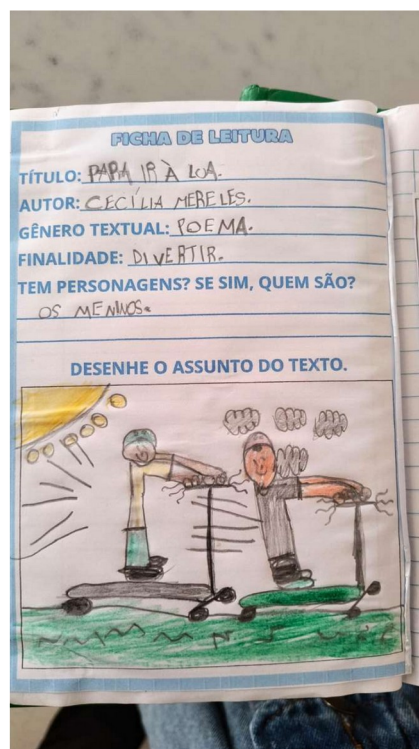 FICHA DE LEITURA
TÍTULO: PARA IR À LUA.
AUTOR: CECÍLIA MERELES.
GÊNERO TEXTUAL: POEMA.
FINALIDADE: DIVERTIR.
TEM PERSONAGENS? SE SIM, QUEM SÃO?
OS MENINOS.
DESENHE O ASSUNTO DO TEXTO.